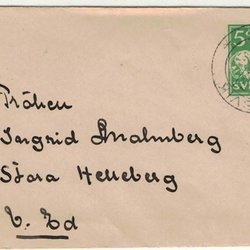 5
SVE
Fröken
Ingrid Malmberg
Stora Helleberg
V. Ed